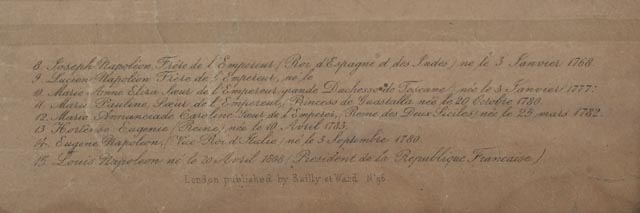 8. Joseph Napoléon Frère de l'Empereur (Roi d'Espagne et des Indes) né le 5 Janvier 1768.
9. Lucien Napoléon Frère de l'Empereur, né le
10. Marie Anne Eliza Sœur de l'Empereur grande Duchesse de Toscane) née le 3 Janvier 1777.
11. Marie Pauline, Sœur de l'Empereur (Princess de Guastalla née le 20 Octobre 1780.
12. Marie Annunciade Caroline Sœur de l'Emperor, Reine des Deux Siciles) née le 25 mars 1782.
13 Hortense Eugenie (Reine) née le 10 Avril 1783.
14. Eugène Napoleon, (Vice Roi d'Italie) né le 3 Septembre 1780.
15. Louis Napoleon né le 20 Avril 1808 (President de la Republique Française)
London published by Bailly et Ward. Nº 96